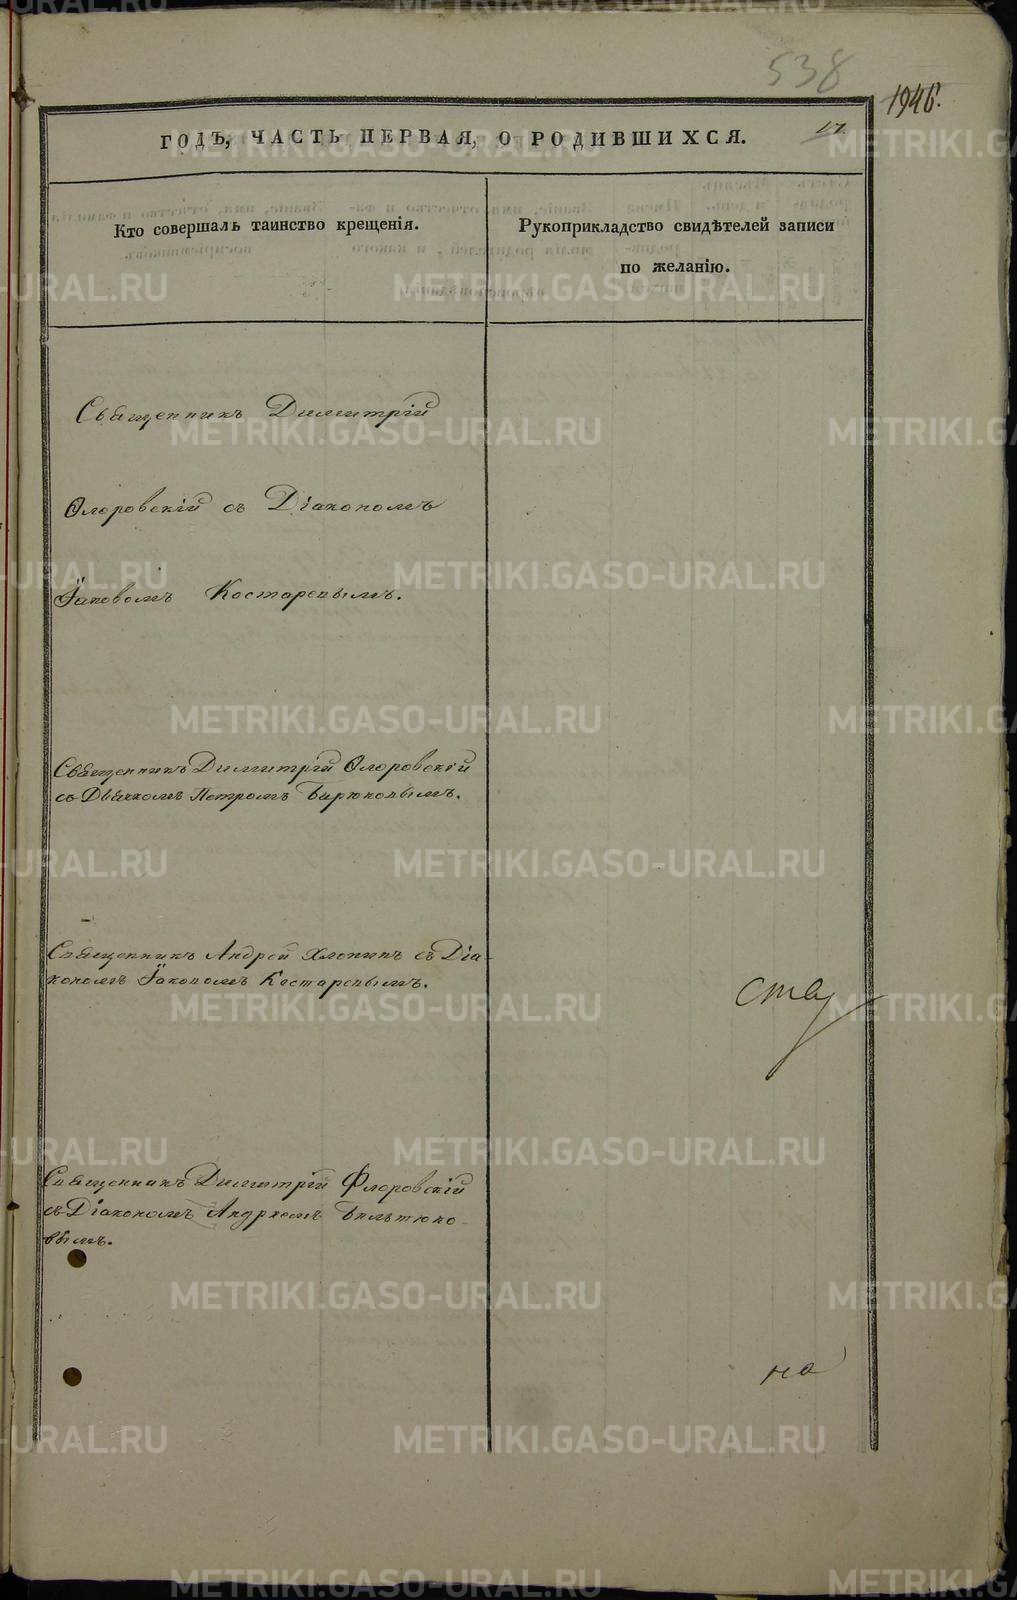 538
1946.
17.
ГОДЪ, ЧАСТЬ ПЕРВАЯ, О РОДИВШИХСЯ.
Кто совершалъ таинство крещенія.
Рукоприкладство свидѣтелей записи
по желанію.
Священникъ Димитрій
Флоровскій съ Діакономъ
Іаковомъ Костаревымъ.
Священникъ Димитрій Флоровскій
съ Дьячкомъ Петромъ Бирюковымъ.
Священникъ Андрей Хлопинъ съ Діа-
кономъ Іаковомъ Костаревымъ.
сту
Священникъ Димитрій Флоровскій
съ Діакономъ Андреемъ Бѣлътюко-
вымъ.
на
METRIKI.GASO-URAL.RU